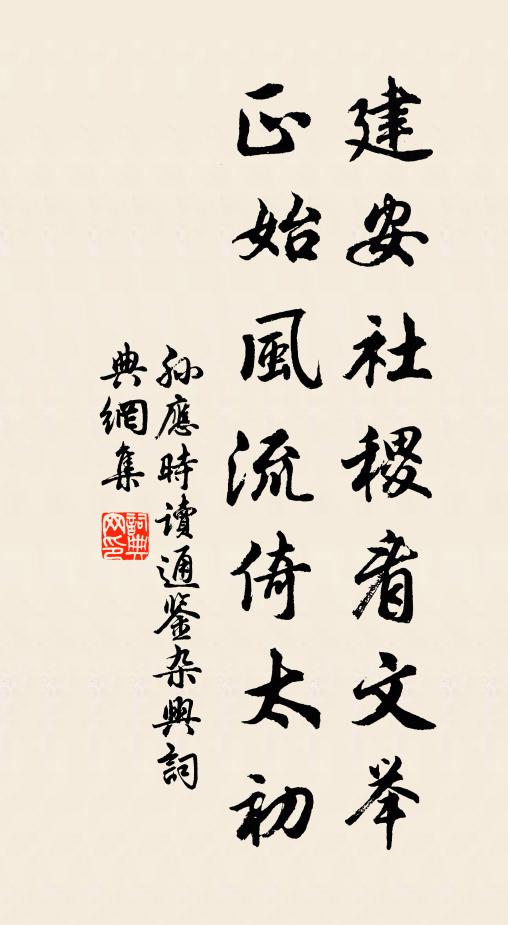 建安社稷看文举
正始風流倚太初
孙應時讀通鉴杂興詞
典網集
詞典網印